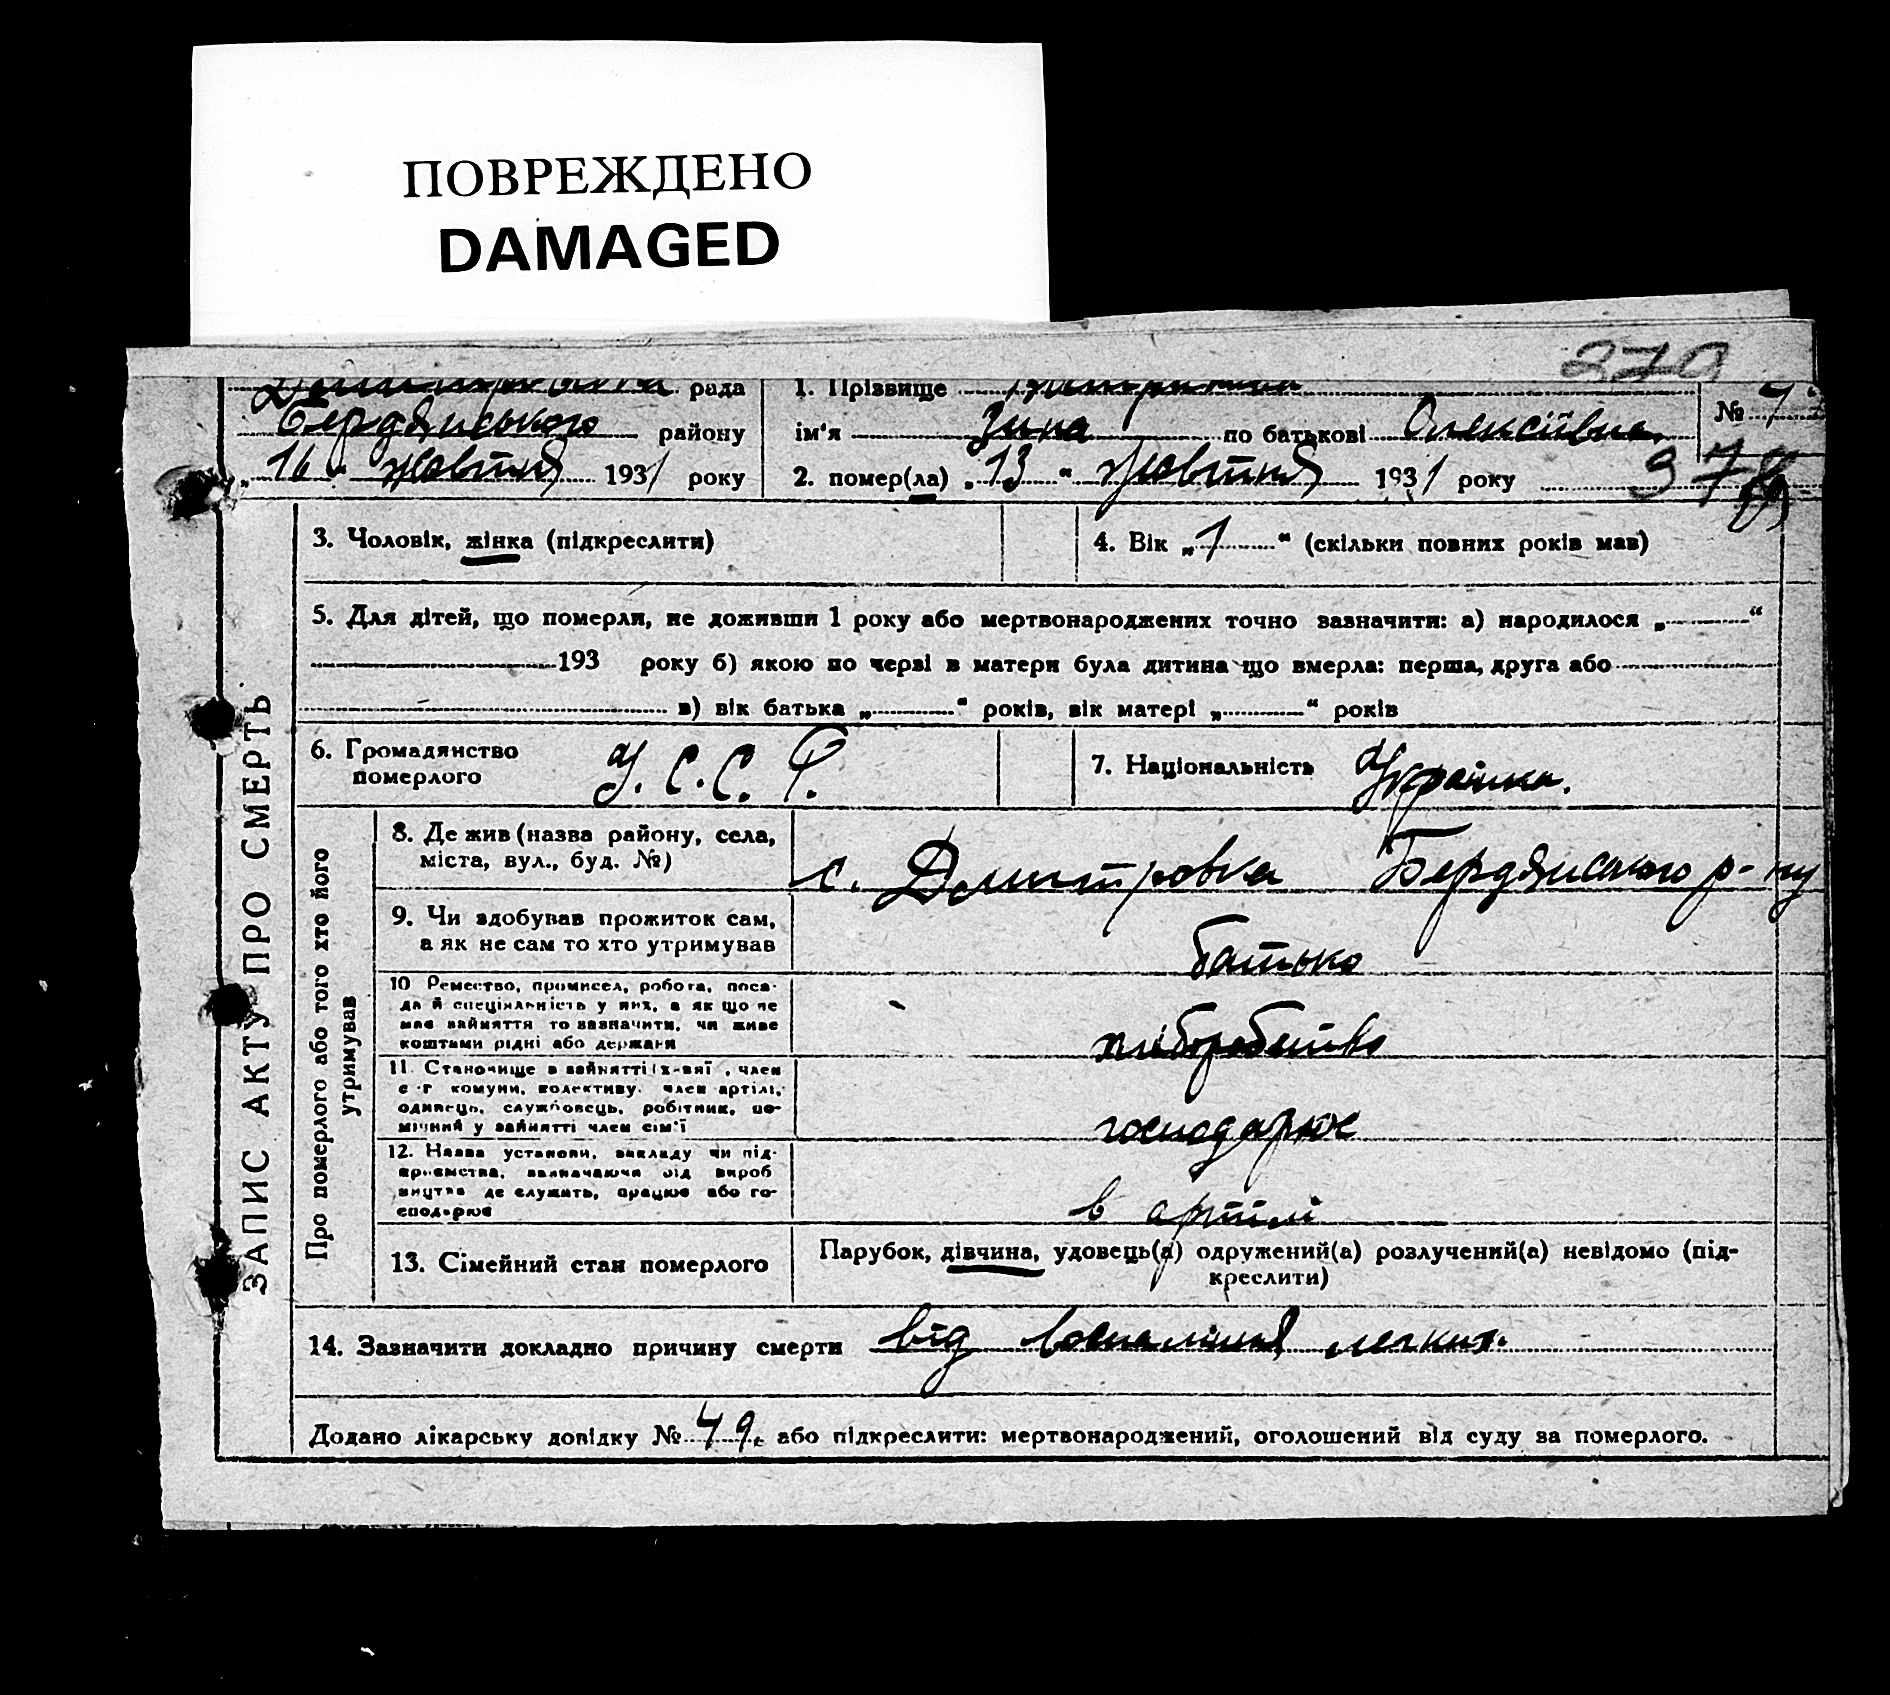 ПОВРЕЖДЕНО
DAMAGED
279
рада 1. Прізвище
Бердянського району ім'я Зина по батькові Олексіївна №
„16" жовтня 1931 року 2. помер(ла) „13" жовтня 1931 року
ЗАПИС АКТУ ПРО СМЕРТЬ
3. Чоловік, жінка (підкреслити) 4. Вік „1" (скільки повних років мав)
5. Для дітей, що померли, не доживши 1 року або мертвонароджених точно зазначити: а) народилося „ "
193 року б) якою по черзі в матери була дитина що вмерла: перша, друга або
в) вік батька „ " років, вік матері „ " років
6. Громадянство У.С.С.Р. 7. Національність Українка.
померлого
Про померлого або того хто його
утримував
8. Де жив (назва району, села,
міста, вул., буд. №) с. Дмитровка Бердянського р-ну
9. Чи здобував прожиток сам,
а як не сам то хто утримував батько
10 Ремество, промисел, робота, поса-
да й спеціяльність у них, а як що не
має зайняття то зазначити, чи живе
коштами рідні або держави хліборобство
11. Становище в зайнятті (х-вні, член
с-г комуни, колективу, член артілі,
одинець, службовець, робітник, по-
мічний у зайнятті член сім'ї господарює
12. Назва установи, закладу чи під-
приємства, зазначаючи від вироб
ництва де служить, працює або го-
сподарює в артілі
13. Сімейний стан померлого Парубок, дівчина, удовець(а) одружений(а) розлучений(а) невідомо (під-
креслити)
14. Зазначити докладно причину смерти від воспаління легких.
Додано лікарську довідку № 49. або підкреслити: мертвонароджений, оголошений від суду за померлого.